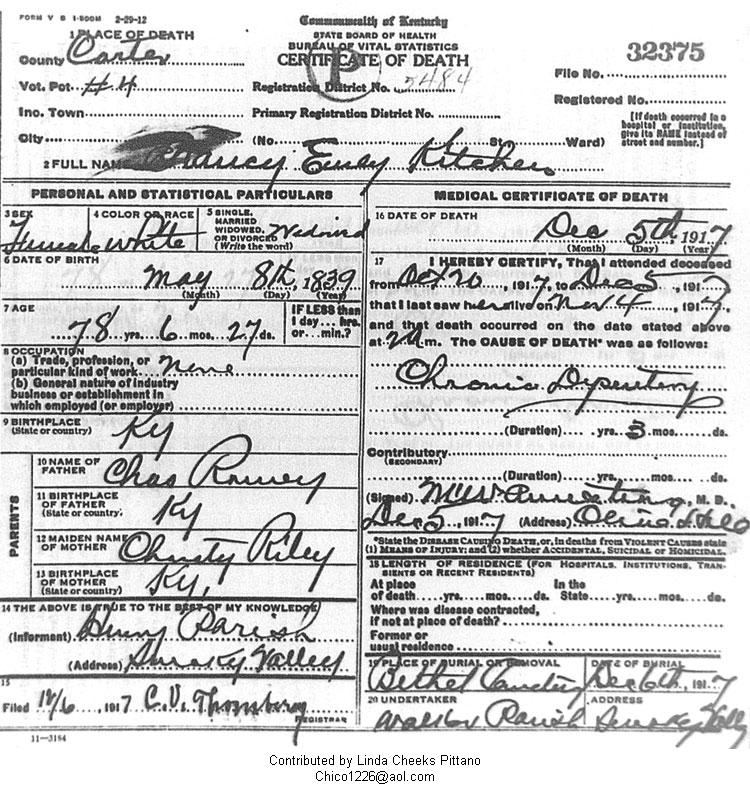 FORM V S 1-500M 2-29-12
Commonwealth of Kentucky
STATE BOARD OF HEALTH
BUREAU OF VITAL STATISTICS
CERTIFICATE OF DEATH
1 PLACE OF DEATH
County Carter
Vot. Pct. #4
Inc. Town
City
Registration District No. 5484
Primary Registration District No.
(No. St. Ward)
32375
File No.
Registered No.
[If death occurred in a
hospital or institution,
give its NAME instead of
street and number.]
P
2 FULL NAME Nancy Emey Kitchen
PERSONAL AND STATISTICAL PARTICULARS
3 SEX Female
4 COLOR OR RACE White
5 SINGLE,
MARRIED
WIDOWED,
OR DIVORCED
(Write the word)
Widowed
6 DATE OF BIRTH
May 8th, 1839
(Month) (Day) (Year)
7 AGE
78 yrs. 6 mos. 27 ds.
IF LESS than
1 day... hrs.
or... min.?
8 OCCUPATION
(a) Trade, profession, or
particular kind of work None
(b) General nature of industry
business or establishment in
which employed (or employer)
9 BIRTHPLACE
(State or country) Ky
PARENTS
10 NAME OF
FATHER Chas Ramey
11 BIRTHPLACE
OF FATHER
(State or country) Ky
12 MAIDEN NAME
OF MOTHER Christy Riley
13 BIRTHPLACE
OF MOTHER
(State or country) Ky,
14 THE ABOVE IS TRUE TO THE BEST OF MY KNOWLEDGE
(Informant) Henry Parish
(Address) Smoky Valley
15
Filed 12/6, 1917 C.V. Thornbery
REGISTRAR
11-3184
MEDICAL CERTIFICATE OF DEATH
16 DATE OF DEATH
Dec 5th 1917
(Month) (Day) (Year)
17 I HEREBY CERTIFY, That I attended deceased
from Oct 20, 1917, to Dec 5, 1917
that I last saw her alive on Nov 4, 1917,
and that death occurred on the date stated above
at m. The CAUSE OF DEATH* was as follows:
Chronic Dysentery
(Duration) yrs. 3 mos. ds.
Contributory
(SECONDARY)
(Duration) yrs. mos. ds.
(Signed) M.D.
Dec 5, 1917 (Address) Olive Hill
*State the DISEASE CAUSING DEATH, or, in deaths from VIOLENT CAUSES state
(1) MEANS OF INJURY; and (2) whether ACCIDENTAL, SUICIDAL or HOMICIDAL.
18 LENGTH OF RESIDENCE (FOR HOSPITALS, INSTITUTIONS, TRAN-
SIENTS OR RECENT RESIDENTS)
At place
of death yrs. mos. ds.
In the
State yrs. mos. ds.
Where was disease contracted,
if not at place of death?
Former or
usual residence
19 PLACE OF BURIAL OR REMOVAL
Bethel
DATE OF BURIAL
Dec 6th, 1917
20 UNDERTAKER
Parish
ADDRESS
Smoky Valley
Contributed by Linda Cheeks Pittano
Chico1226@aol.com